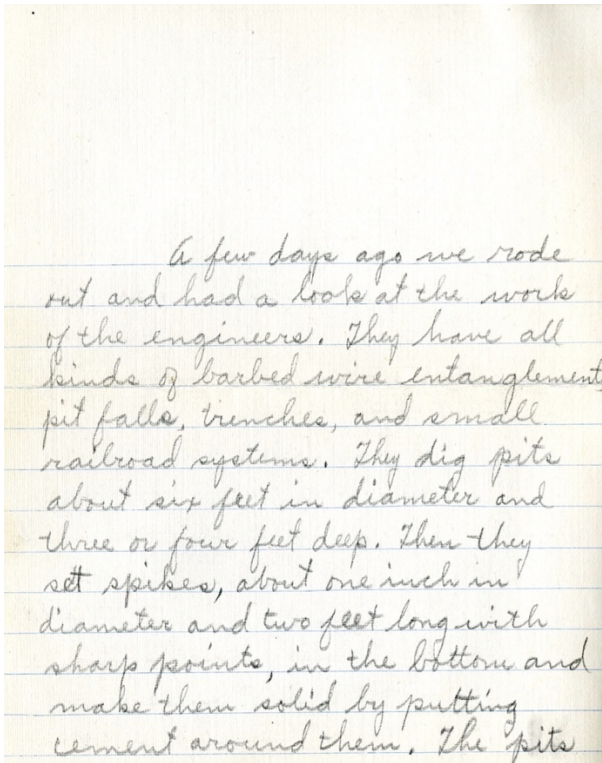 A few days ago we rode
out and had a look at the work
of the engineers. They have all
kinds of barbed wire entanglement
pit falls, trenches, and small
railroad systems. They dig pits
about six feet in diameter and
three or four feet deep. Then they
set spikes, about one inch in
diameter and two feet long with
sharp points, in the bottom and
make them solid by putting
cement around them. The pits